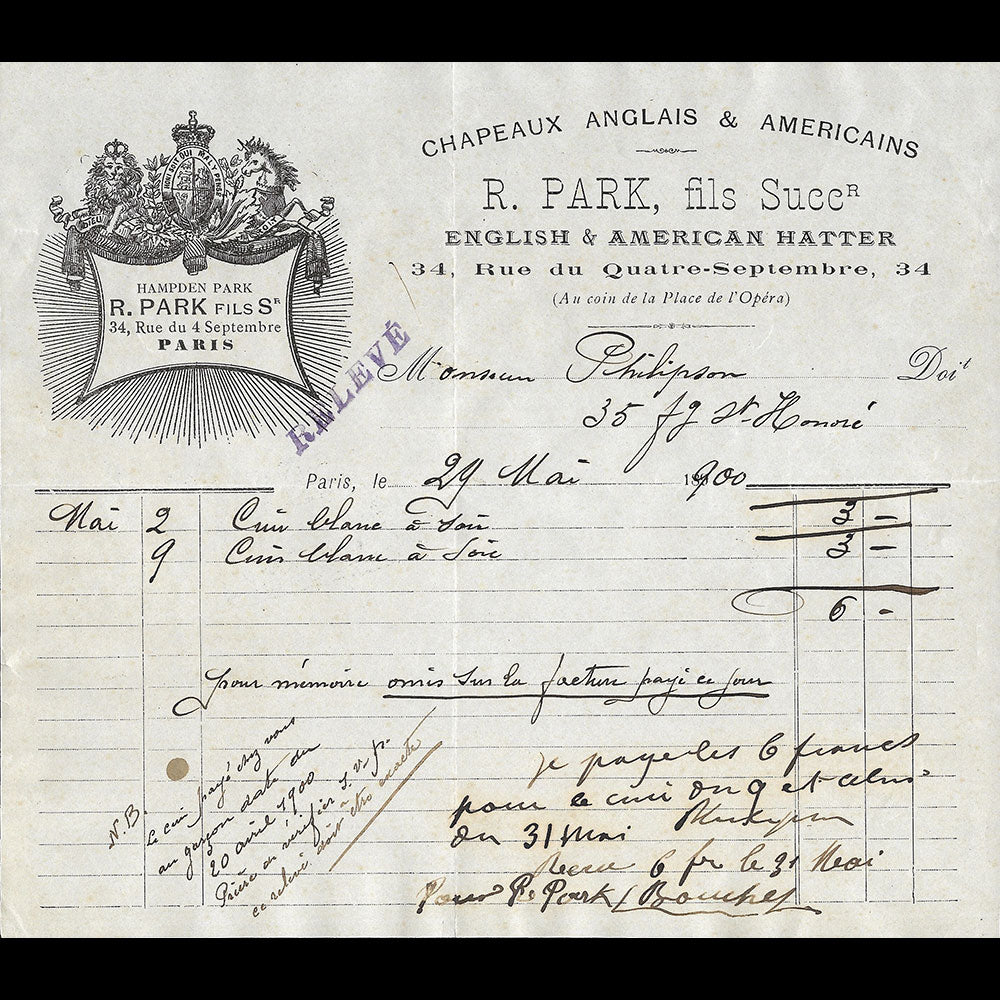 CHAPEAUX ANGLAIS & AMERICAINS
R. PARK, fils Succᴿ
ENGLISH & AMERICAN HATTER
34, Rue du Quatre-Septembre, 34
(Au coin de la Place de l'Opéra)
HONI SOIT QUI MAL Y PENSE
HAMPDEN PARK
R. PARK FILS Sᴿ
34, Rue du 4 Septembre
PARIS
RELEVÉ
Monsieur Philipson Doit
35 fg St Honoré
Paris, le 29 Mai 1900
Mai 2 Cuir blanc à Soie 3 -
9 Cuir blanc à Soie 3 -
6 -
pour mémoire omis sur la facture payé ce jour
N.B. Le cuir payé chez vous
au garçon date du
20 avril 1900
Prière de vérifier S.V.P.
ce relevé doit être exacte
je paye les 6 francs
pour le cuir du 9 et celui
du 31 Mai
Recu 6 fr le 31 Mai
Pour R. Park / Bouchet